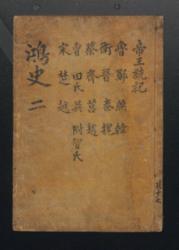 帝王號記
魯 鄭 燕 韓
衛 晉 秦 魏
蔡 齊 莒 趙
曹 田氏 吳 附智氏
宋 楚 越
鴻史 二
共十七